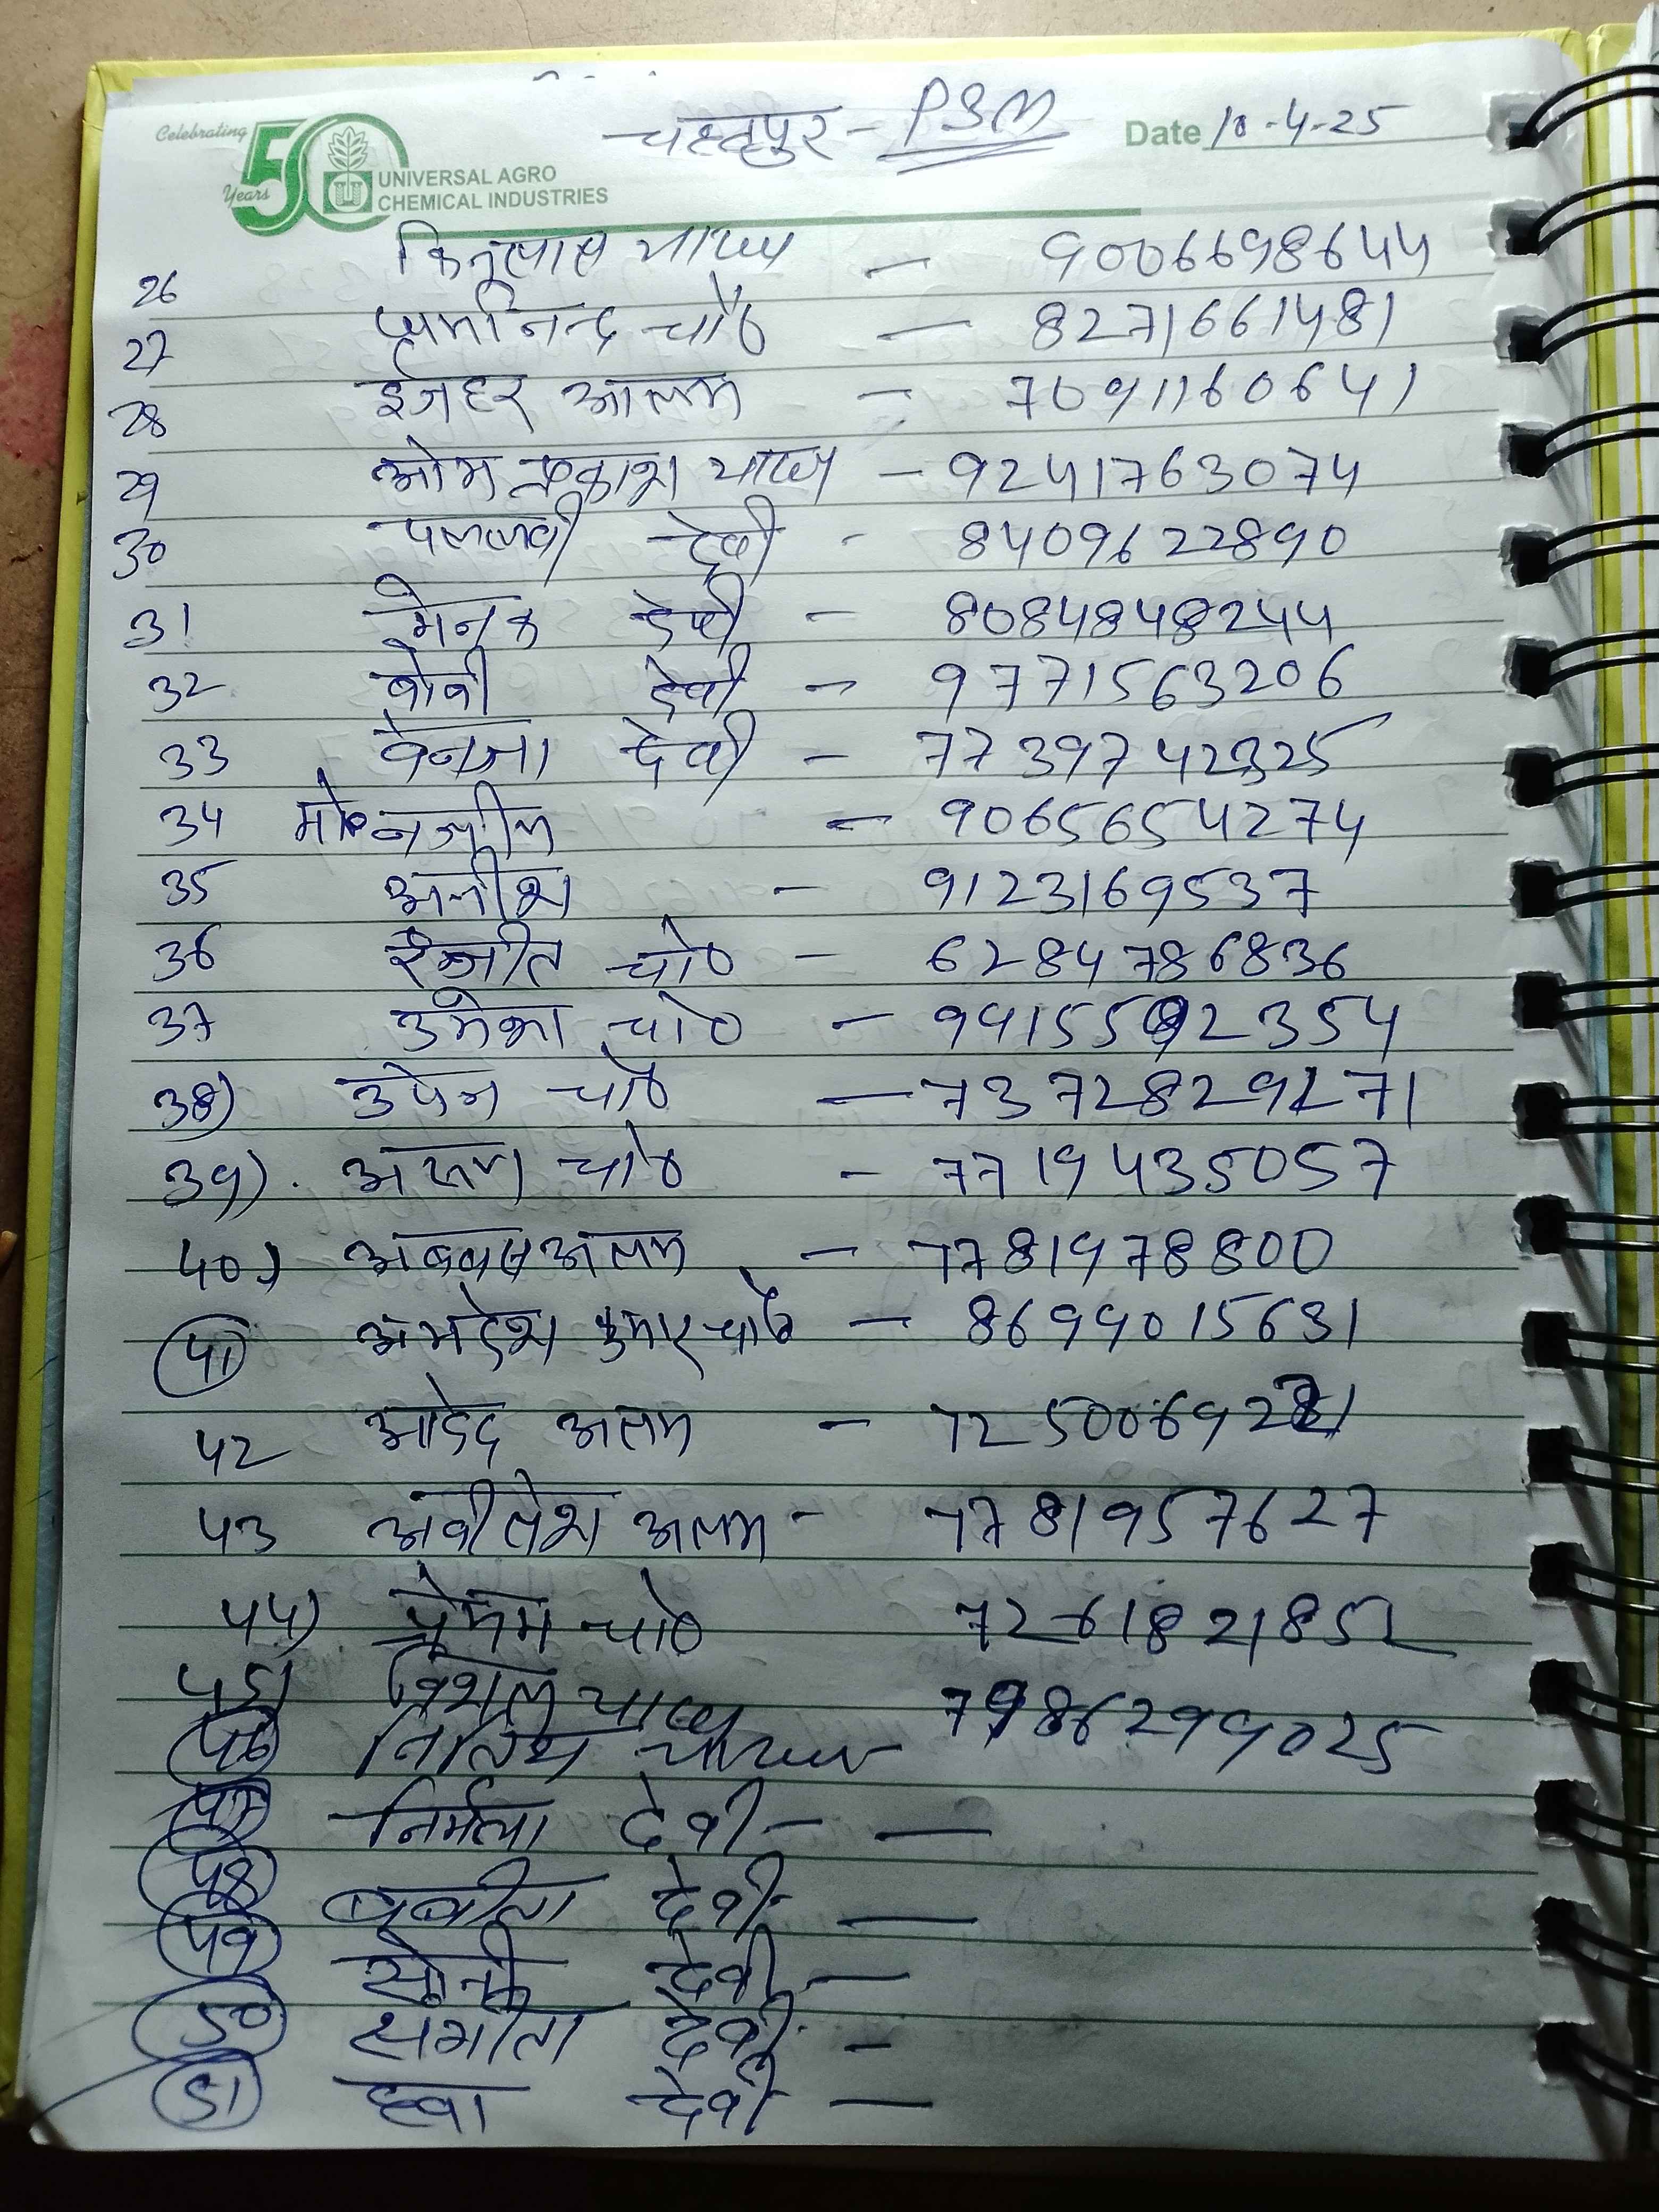 Celebrating 50 Years
UNIVERSAL AGRO
CHEMICAL INDUSTRIES
PSM
Date 10-4-25
26 - 9006698644
27 धर्मानन्द चौ० - 8271661481
28 ईजहर आलम - 7091160641
29 ओम प्रकाश यादव - 9241763074
30 पल्लवी देवी - 8409622890
31 मेनका देवी - 8084848244
32 बोबी देवी - 9771563206
33 देवी - 7739742325
34 मो० - 9065654274
35 - 9123169537
36 रंजीत चौ० - 6284786836
37 उमेश चौ० - 9915592354
38) उपेन चौ० - 7372829271
39) अरुण चौ० - 7719435057
40) आलम - 7781978800
41 कुमार चौ० - 8699015631
42 आलम -
43 आलम - 7781957627
44) चौ० 7261821852
45) विशाल यादव 7986299025
46 नितिश यादव
47 निर्मला देवी -
48 बबीता देवी -
49 सोनी देवी -
50 संगीता देवी -
51 देवी -